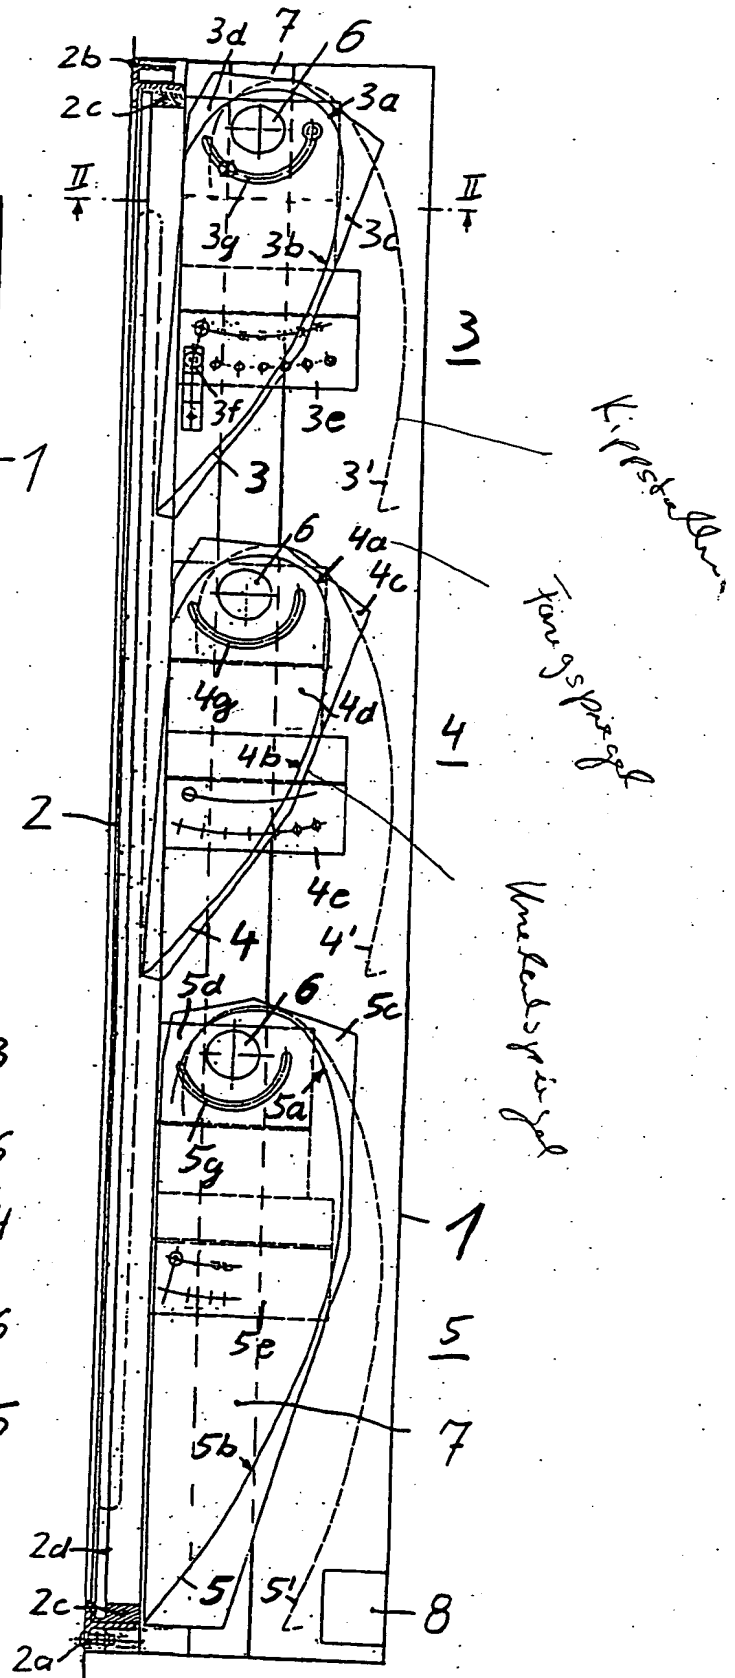 3d 7 6
2b
2c
3a
II II
3g 3b 3c
3
3f 3e
1
3 3'
Kippstellung
6 4a
4c
Fangspiegel
4g 4d 4
4b
2
4e
4 4'
Umlenkspiegel
5d 6 5c
3
5a
6
5g
4
1
6
5e 5
5
7
5b
2d
5 5'
2c 8
2a